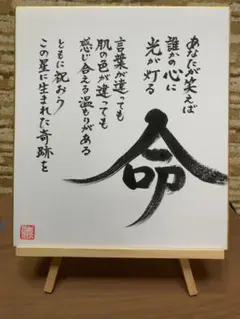 あなたが笑えば
誰かの心に
光が灯る
言葉が違っても
肌の色が違っても
感じ合える温もりがある
ともに祝おう
この星に生まれた奇跡を
命